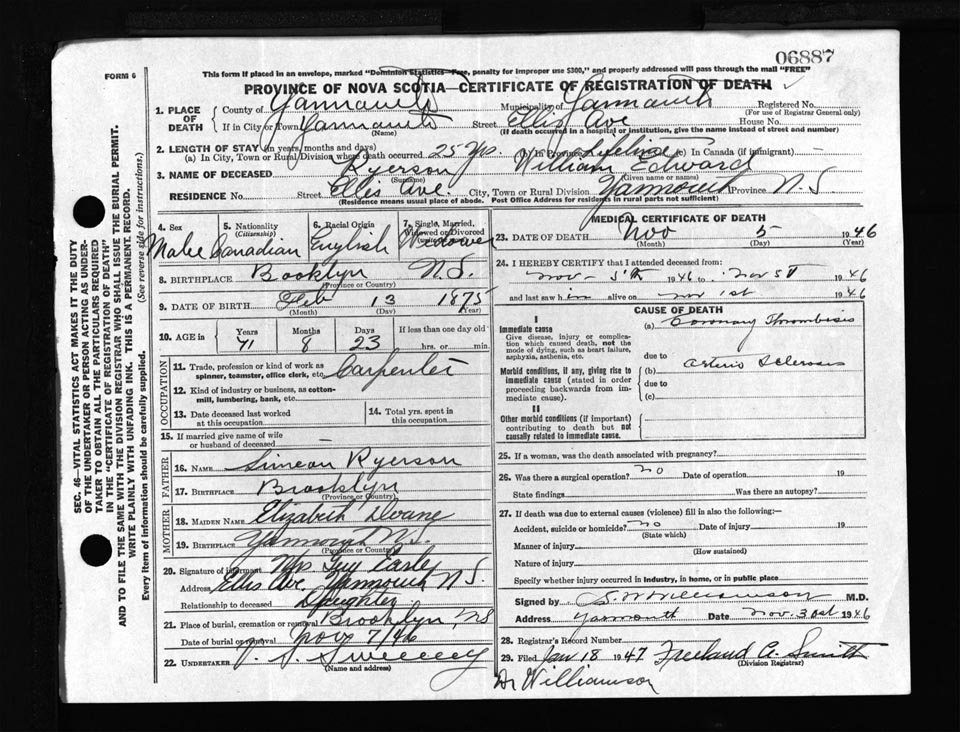 06887
FORM 6
This form if placed in an envelope, marked "Dominion Statistics—Free, penalty for improper use $300," and properly addressed will pass through the mail "FREE"
PROVINCE OF NOVA SCOTIA—CERTIFICATE OF REGISTRATION OF DEATH
1. PLACE OF DEATH County of Yarmouth Municipality of Yarmouth Registered No.
(For use of Registrar General only)
If in City or Town Yarmouth Street Ellis Ave House No.
(Name) (If death occurred in a hospital or institution, give the name instead of street and number)
2. LENGTH OF STAY (in years, months and days)
(a) In City, Town or Rural Division where death occurred 25 yrs. (b) In Province Lifetime (c) In Canada (if immigrant)
3. NAME OF DECEASED Ryerson William Edward
(Surname) (Given name or names)
RESIDENCE No. Street Ellis Ave. City, Town or Rural Division Yarmouth Province N.S
(Residence means usual place of abode. Post Office Address for residents in rural parts not sufficient)
4. Sex 5. Nationality (Citizenship) 6. Racial Origin 7. Single, Married, Widowed or Divorced
Male Canadian English Widower
8. BIRTHPLACE Brooklyn N.S.
(Province or Country)
9. DATE OF BIRTH Feb 13 1875
(Month) (Day) (Year)
10. AGE in Years Months Days If less than one day old
71 8 23 hrs. or min.
OCCUPATION
11. Trade, profession or kind of work as spinner, teamster, office clerk, etc. Carpenter
12. Kind of industry or business, as cotton-mill, lumbering, bank, etc.
13. Date deceased last worked at this occupation 14. Total yrs. spent in this occupation
15. If married give name of wife or husband of deceased —
FATHER
16. NAME Simeon Ryerson
17. BIRTHPLACE Brooklyn
(Province or Country)
MOTHER
18. MAIDEN NAME Elizabeth Doane
19. BIRTHPLACE Yarmouth N.S.
(Province or Country)
20. Signature of informant Mrs Guy Earle
Address Ellis Ave. Yarmouth N S.
Relationship to deceased Daughter
21. Place of burial, cremation or removal Brooklyn, NS
Date of burial or removal Nov 7/46
22. UNDERTAKER Sweeney
(Name and address)
MEDICAL CERTIFICATE OF DEATH
23. DATE OF DEATH Nov 5 1946
(Month) (Day) (Year)
24. I HEREBY CERTIFY that I attended deceased from:
Nov - 5th 1946 to Nov 5th 1946
and last saw him alive on Nov 1st 1946
CAUSE OF DEATH
I
Immediate cause (a) Coronary Thrombosis
Give disease, injury or complication which caused death, not the mode of dying, such as heart failure, asphyxia, asthenia, etc.
due to
Morbid conditions, if any, giving rise to immediate cause (stated in order proceeding backwards from immediate cause). (b) Arterio Sclerosis
due to
(c)
II
Other morbid conditions (if important) contributing to death but not causally related to immediate cause.
25. If a woman, was the death associated with pregnancy?
26. Was there a surgical operation? no Date of operation 19
State findings Was there an autopsy?
27. If death was due to external causes (violence) fill in also the following:—
Accident, suicide or homicide? no Date of injury 19
(State which)
Manner of injury
(How sustained)
Nature of injury
Specify whether injury occurred in industry, in home, or in public place
Signed by S. W. Williamson M.D.
Address Yarmouth Date Nov. 1946
28. Registrar's Record Number
29. Filed Jan 18 1947 Freeland A. Smith
(Division Registrar)
Dr Williamson
SEC. 46—VITAL STATISTICS ACT MAKES IT THE DUTY
OF THE UNDERTAKER OR PERSON ACTING AS UNDERTAKER TO OBTAIN ALL THE PARTICULARS REQUIRED
IN THE "CERTIFICATE OF REGISTRATION OF DEATH"
AND TO FILE THE SAME WITH THE DIVISION REGISTRAR WHO SHALL ISSUE THE BURIAL PERMIT.
WRITE PLAINLY WITH UNFADING INK. THIS IS A PERMANENT RECORD.
Every item of information should be carefully supplied. (See reverse side for instructions).